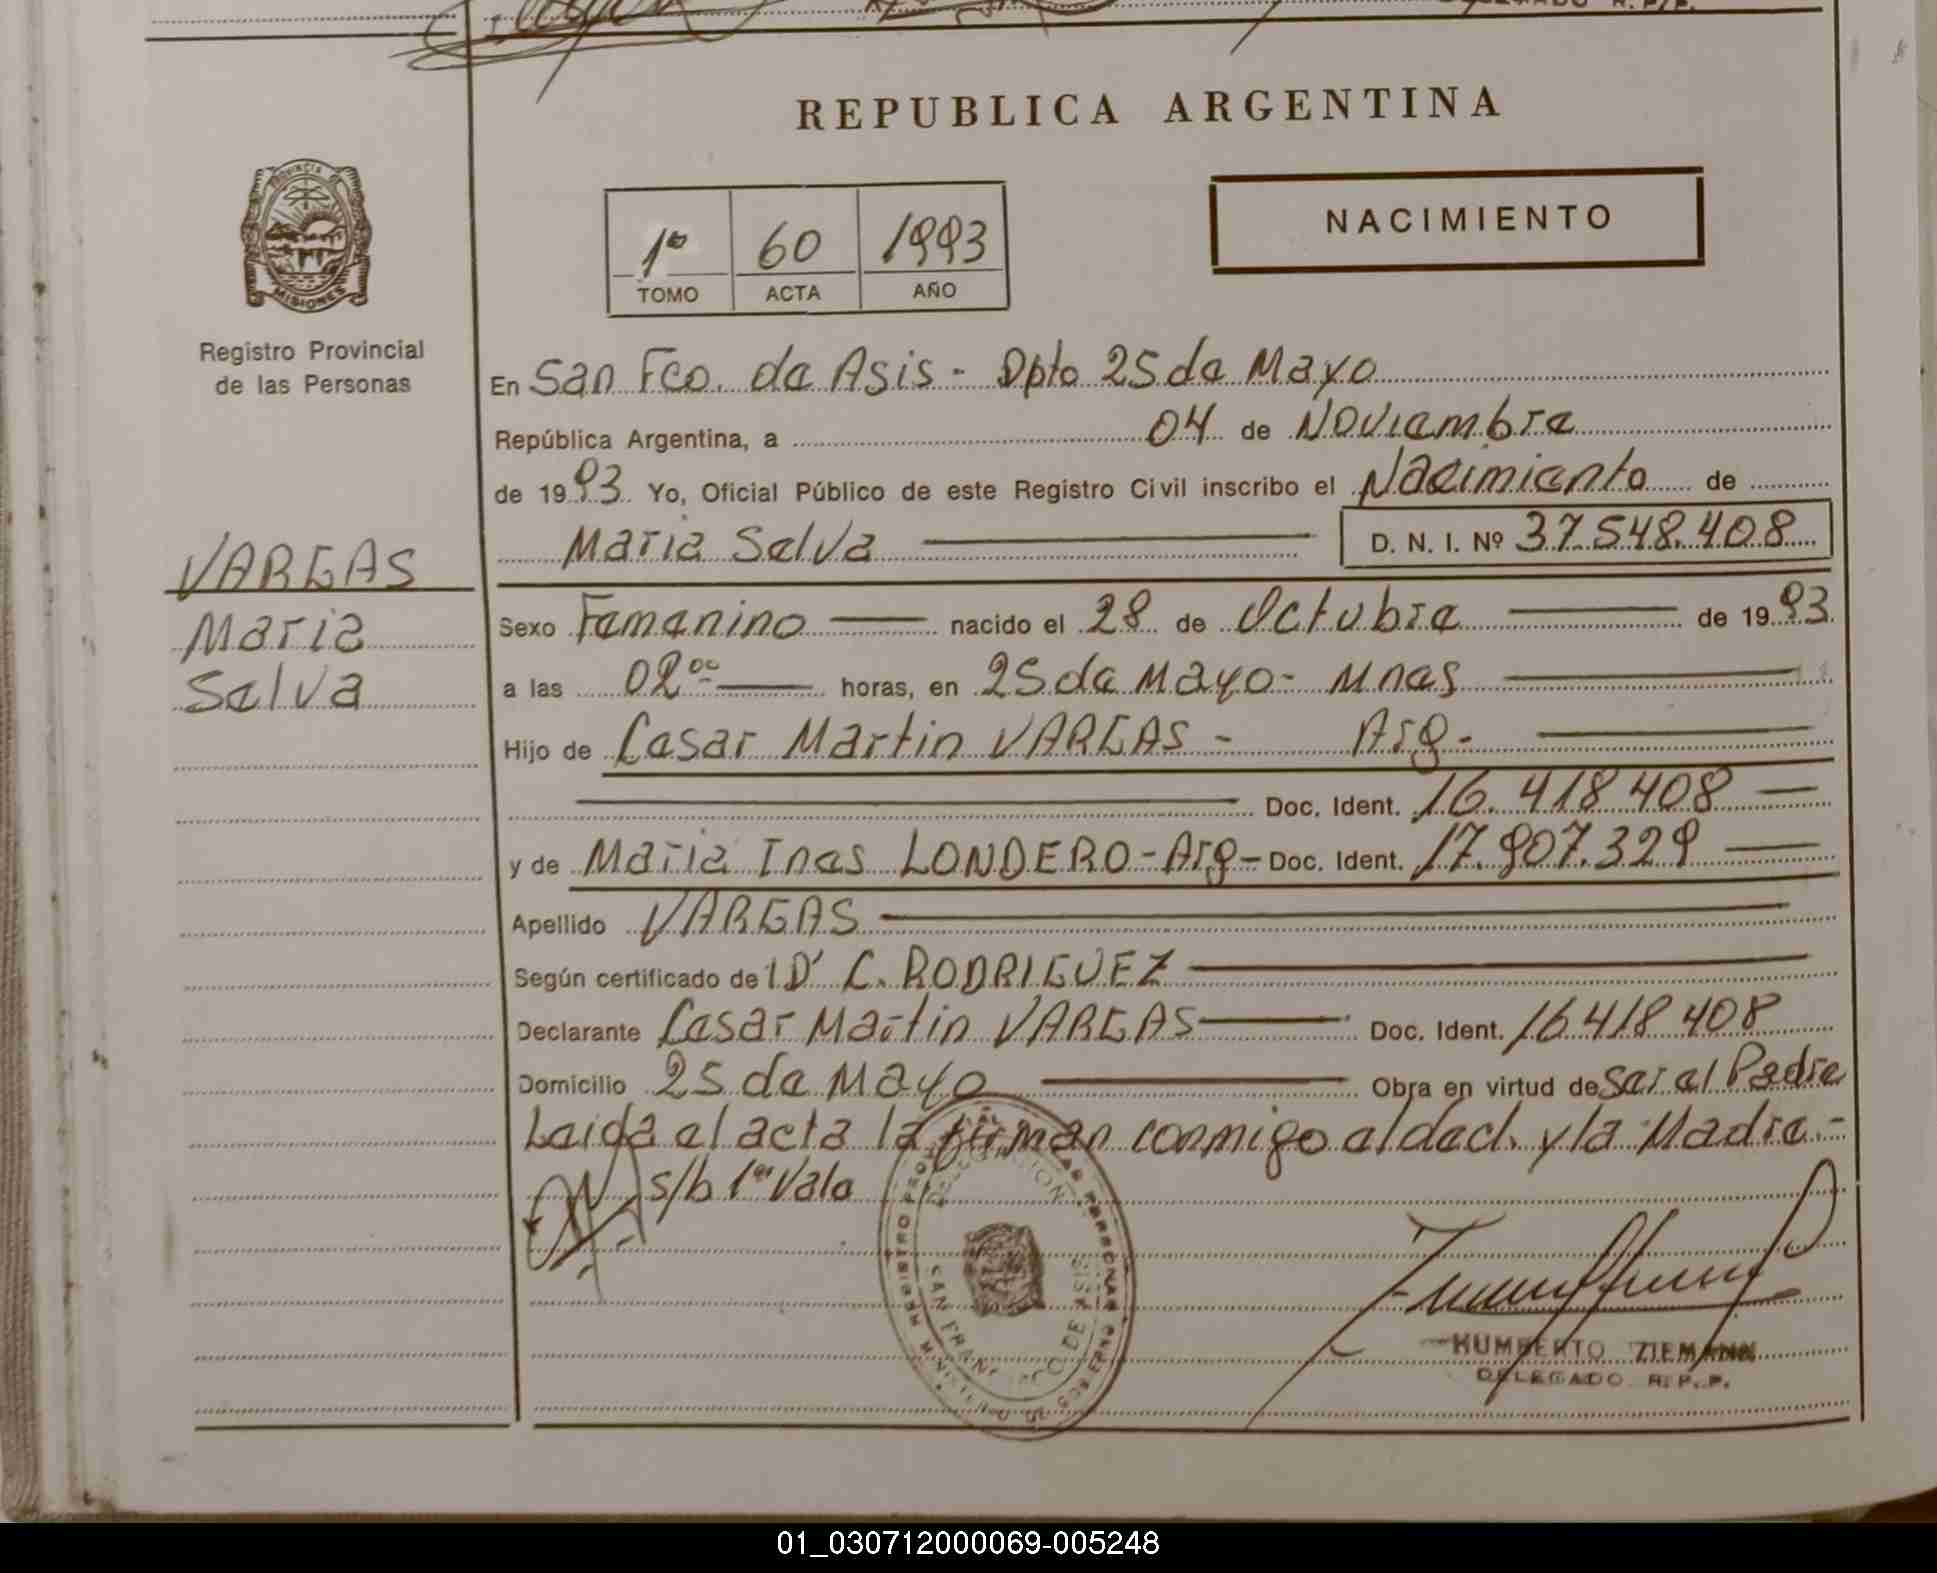 REPUBLICA ARGENTINA
PROVINCIA DE
MISIONES
Registro Provincial
de las Personas
1º 60 1993
TOMO ACTA AÑO
NACIMIENTO
En San Fco. de Asis - Dpto 25 de Mayo
República Argentina, a 04 de Noviembre
de 1993 Yo, Oficial Público de este Registro Civil inscribo el Nacimiento de
Maria Selva D. N. I. Nº 37.548.408
VARGAS
Maria
Selva
Sexo Femenino nacido el 28 de Octubre de 1993
a las 02⁰⁰ horas, en 25 de Mayo - Mnes
Hijo de Cesar Martin VARGAS - Arg -
Doc. Ident. 16.418.408
y de Maria Ines LONDERO - Arg - Doc. Ident. 17.907.329
Apellido VARGAS
Según certificado de D' C. RODRIGUEZ
Declarante Cesar Martin VARGAS Doc. Ident. 16.418.408
Domicilio 25 de Mayo Obra en virtud de Ser el Padre
Leida el acta la firman conmigo el decl. y la Madre.-
s/b 1º Vale
SAN FRANCISCO DE ASIS
HUMBERTO ZIEMANN
DELEGADO R. P. P.
01_030712000069-005248